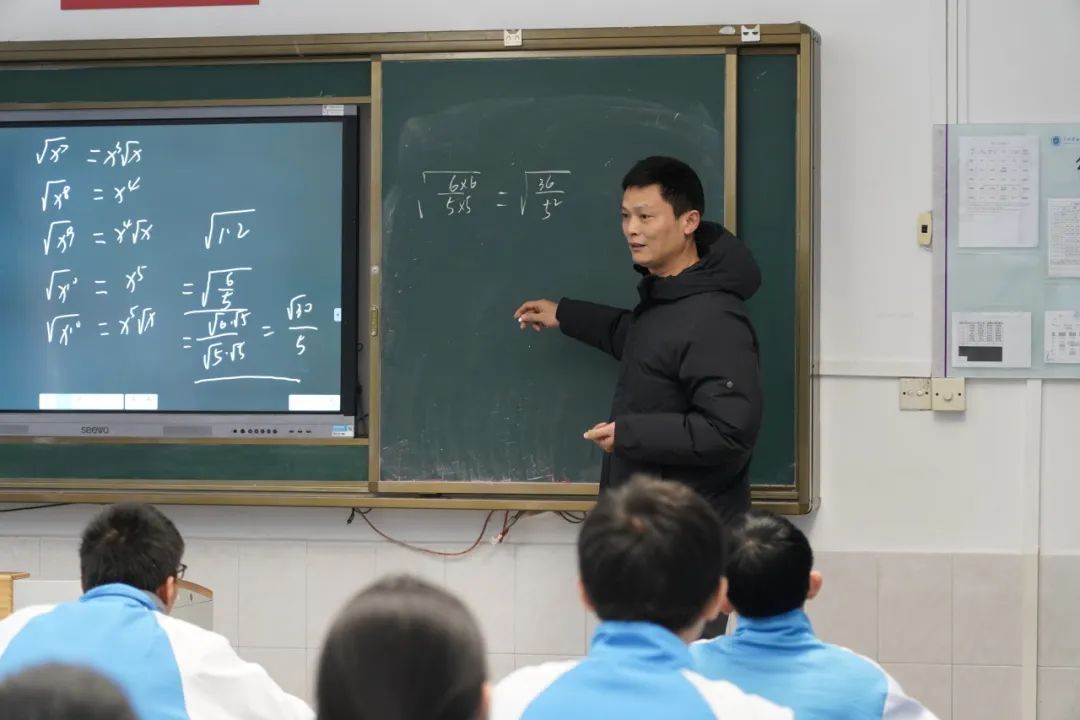 √x⁷ = x³√x
√x⁸ = x⁴
√x⁹ = x⁴√x
√x¹⁰ = x⁵
√x¹⁰ = x⁵√x
√1.2
= √(6/5)
= (√6·√5)/(√5·√5) = √30/5
seewo
√((6×6)/(5×5)) = √(36/5²)